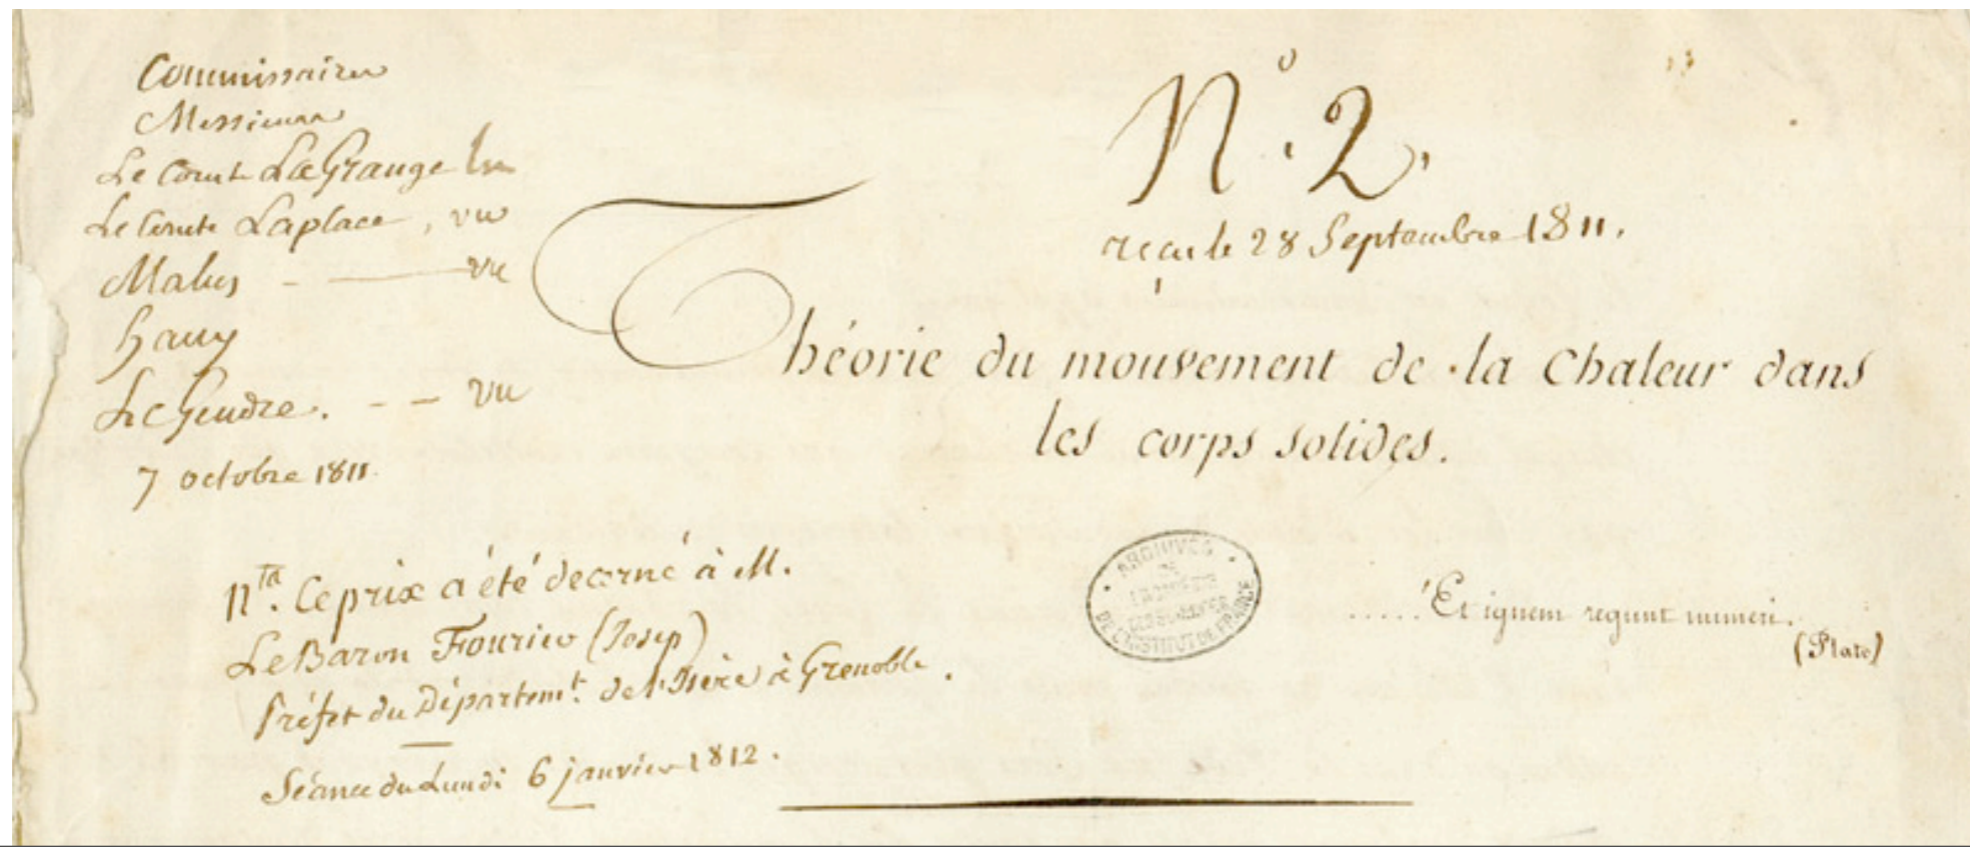 Commissaires
Messieurs
Le Comte LaGrange lu
Le Comte Laplace, vu
Malus - — vu
hauy
LeGendre. - - vu
7 octobre 1811.
N.º 2.
reçu le 28 Septembre 1811.
Théorie du mouvement de la Chaleur dans
les corps solides.
Nta. Ce prix a été décerné à M.
Le Baron Fourier (Josep)
Préfet du Départemt. de l'Isère à Grenoble.
Séance du Lundi 6 janvier 1812.
ARCHIVES
DE L'INSTITUT DE FRANCE
..... Et ignem regunt numeri.
(Plato)